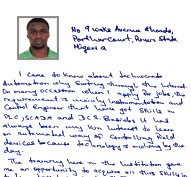 No 9 Wike Avenue Rhundo,
Portharcourt, Rivers State
Nigeria
I came to know about technocrats
Automation why surfing through the internet.
On many occasion when I apply for jobs, the
requirement is mainly instrumentation and
Control Engineer that have got skills in
PLC, SCADA and DCS. Besides it has
always been my own interest to learn
on automated way of controlling field
devices because technology is evolving by the
day.
The training here in the institution gave
me an opportunity to acquire all this skills in